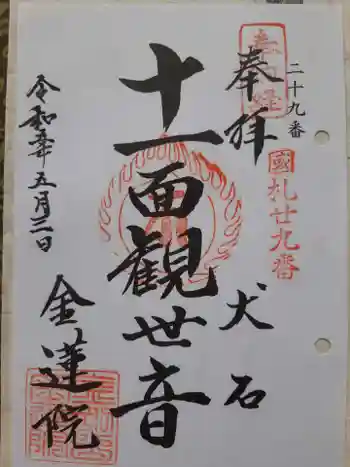 二十九番
奉拝
國札廿九番
犬石
十一面觀世音
金蓮院
令和
年五月三日